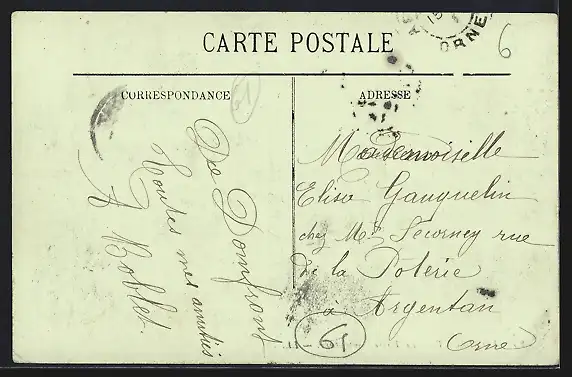 CARTE POSTALE
CORRESPONDANCE
ADRESSE
De Domfront
toutes mes amitiés
A Boblet
Mademoiselle
Elise Gauquelin
chez Me rue
de la Poterie
à Argentan
Orne
ORNE
61
61
6